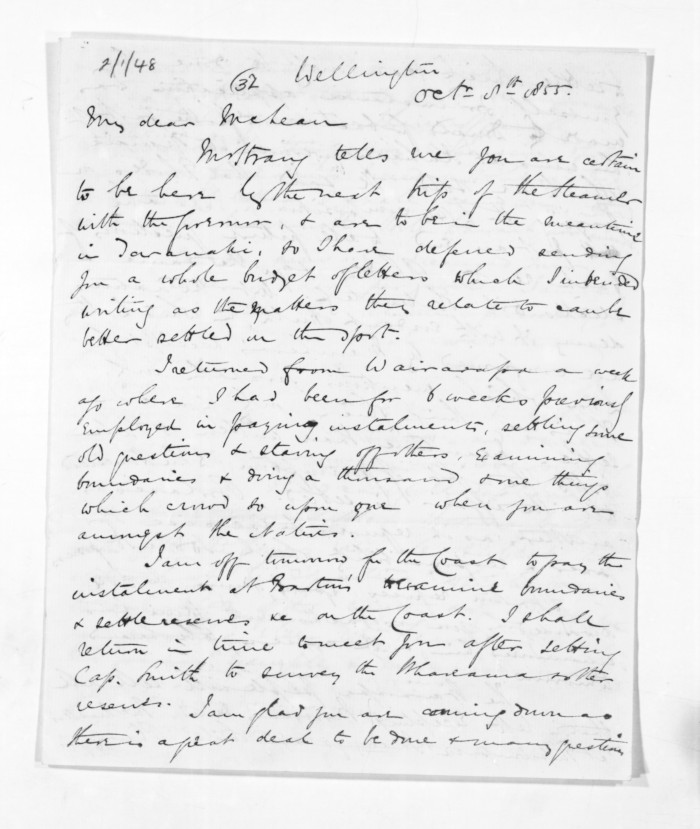 2/1/48
(32 Wellington
Octr 8th 1855.
My dear McLean
McStrang tells me you are certain
to be here by the next trip of the Steamer
with the Governor, & are to be in the meantime
in Taranaki, so I have deferred sending
you a whole budget of letters which I intended
writing as the matters they relate to can be
better settled on the spot.
I returned from Wairarapa a week
ago where I had been for 6 weeks previously
employed in paying instalments, settling some
old questions & staving off others, examining
boundaries & doing a thousand & one things
which crowd so upon one when you are
amongst the Natives.
I am off tomorrow for the Coast to pay the
instalment at examine boundaries
& settle reserves &c on the Coast. I shall
return in time to meet you after setting
Cap. Smith to survey the Whareama & other
reserves.
I am glad you are coming down as
there is a great deal to be done & many questions